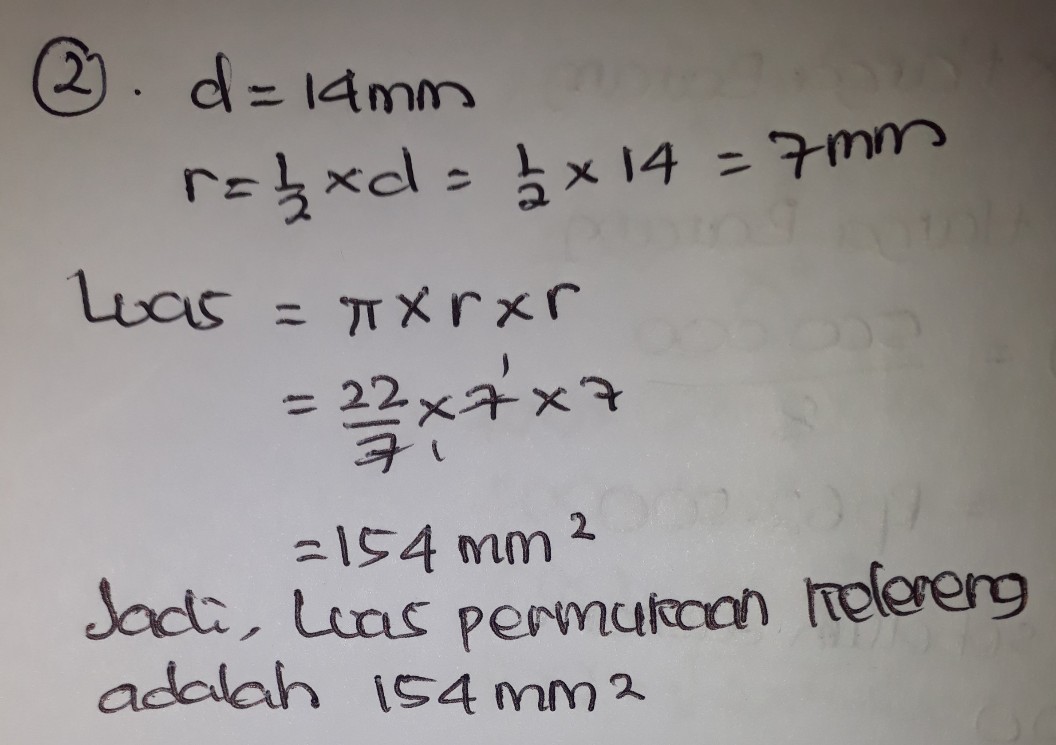 2. d = 14 mm
r = 1/2 × d = 1/2 × 14 = 7 mm
Luas = π × r × r
= 22/7 1 × 7 1 × 7
= 154 mm²
Jadi, Luas permukaan kelereng
adalah 154 mm2